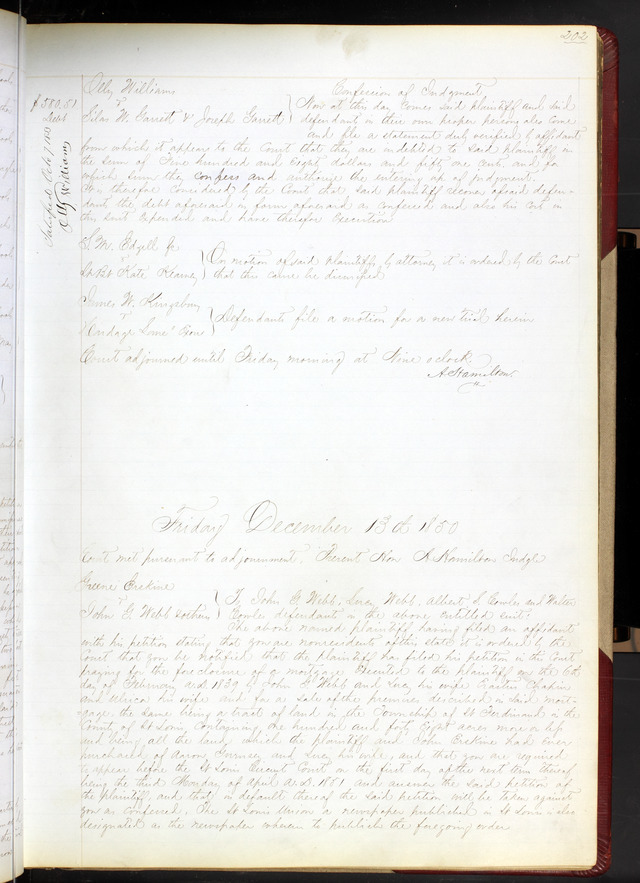 202
Otly Williams Confession of Judgment
$580.51 vs Now at this day comes said plaintiff and said
Debt Silas W. Garrett & Joseph Garrett defendants in their own proper persons also come
and file a statement duly verified by affidavit
from which it appears to the Court that they are indebted to said plaintiff in
the sum of Five hundred and Eighty dollars and fifty one cents and for
which sum they confess and authorize the entering up of judgment.
It is therefore Considered by the Court that said plaintiff recover of said defen-
dants the debt aforesaid in form aforesaid as confessed and also his Costs in
this suit expended and have therefor Execution.
Satisfied Williams
S. M. Edgell Jr
vs On motion of said plaintiff by attorney it is ordered by the Court
St Bt Kate Kearney that this cause be dismissed
James W. Kingsbury
vs Defendants file a motion for a new trial herein
Court adjourned until Friday morning at Nine oclock.
A. Hamilton.
Friday December 13th 1850
Court met pursuant to adjournment. Present Hon A. Hamilton Judge
Greene Erskine
vs To John G. Webb, Lucy Webb, Albert S. Cowles and Walter
John G. Webb Cowles defendants in the above entitled suit:
The above named plaintiffs having filed an affidavit
with his petition stating that you are nonresidents of this state it is ordered by the
Court that you be notified that the plaintiff has filed his petition in this Court
praying for the foreclosure of a mortgage Executed to the plaintiff on the 6th
day of February a.d. 1839 by John G. Webb and Lucy his wife
and Rebecca his wife and for a sale of the premises described in said mort-
gage the same being a tract of land in the Township of St Ferdinand in the
County of St Louis Containing one hundred and forty Eight acres more or less
and being all the land which the plaintiff and John Erskine had ever
purchased of and his wife, and that you are required
to appear before the St Louis Circuit Court on the first day of the next term thereof
being the third Monday of April A.D. 1851 and answer the said petition of
the plaintiff and that in default thereof the said petition will be taken against
you as confessed. The St Louis Union a newspaper published in St Louis is also
designated as the newspaper wherein to publish the foregoing order